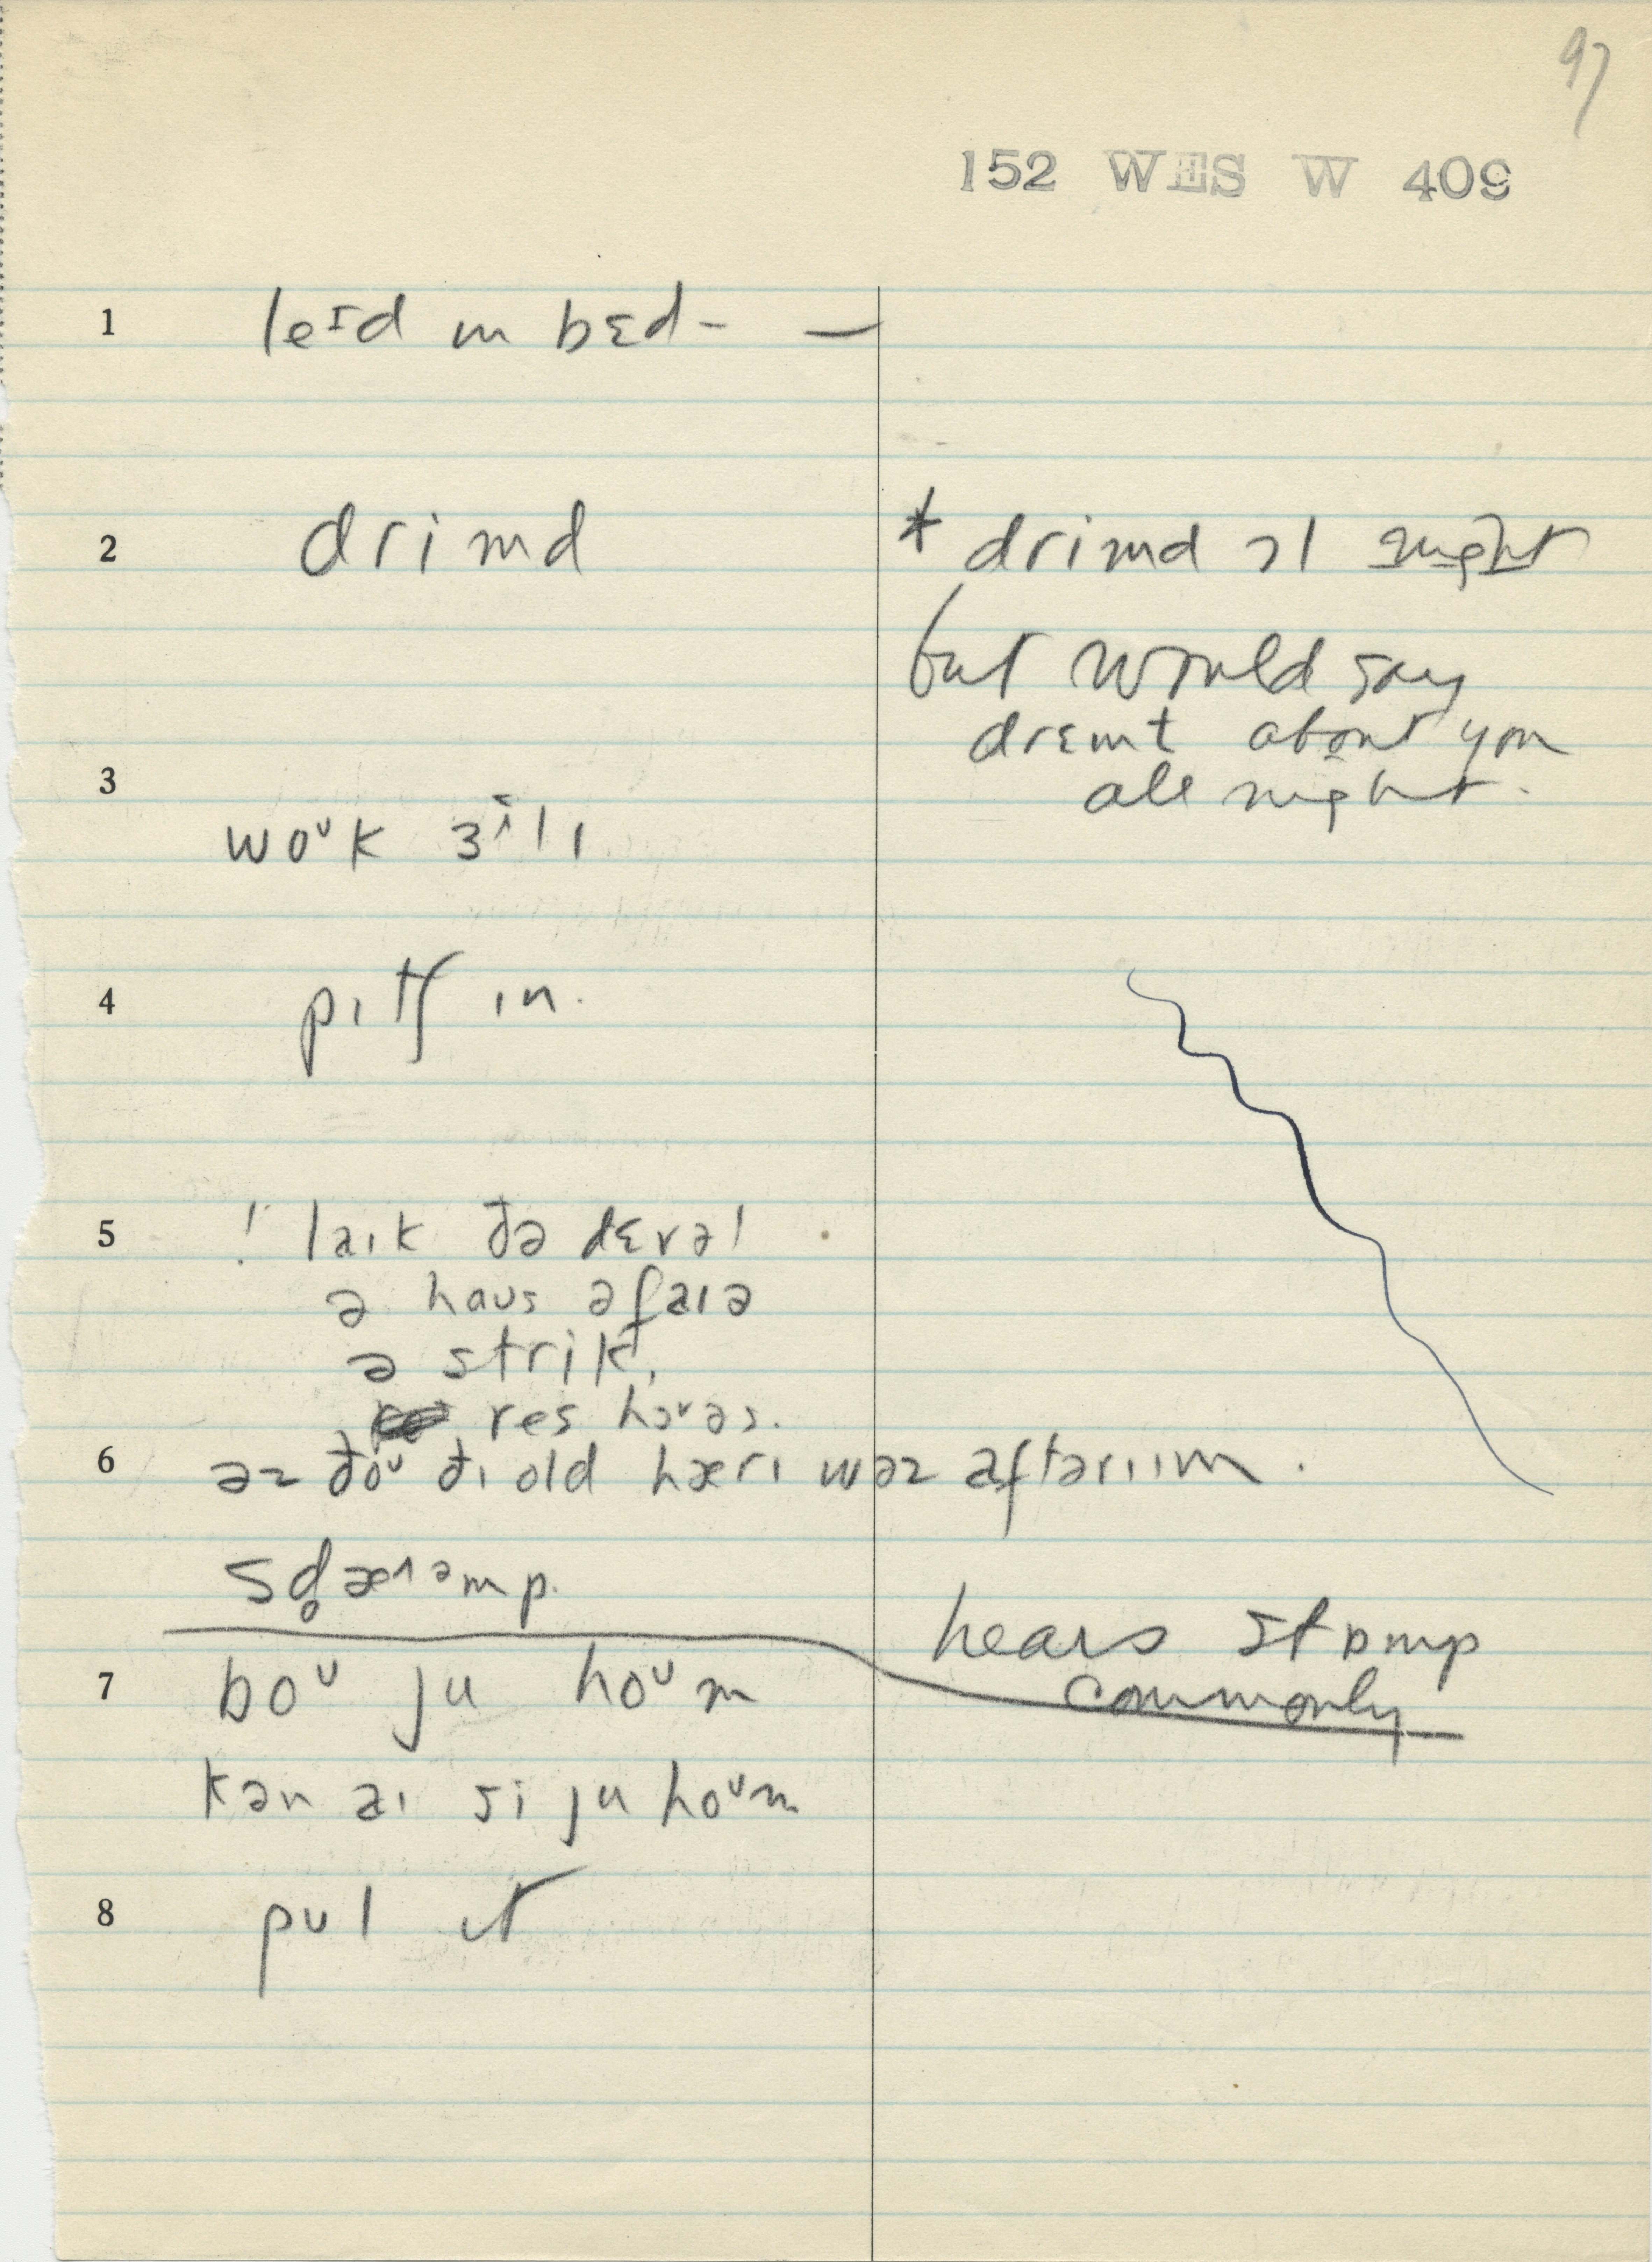 97
152 WES W 409
1 leɪd ɪn bɛd - —
2 drimd * drimd ɔl night
but would say
drɛmt about you
all night.
3
woᴜk ɜ^ɪlɪ
4 pɪtʃ ɪn.
5 ! laɪk ðə dɛvəl
ə haʊs əfaɪə
ə strik,
res hɔᵛəs.
6 əz ðoᴜ ðɪ old hærɪ wəz aftərɪɪm.
hears stɒmp
commonly
7 boᴜ ju hoᴜm
kən aɪ si ju hoᴜm
8 pʊl ɪt